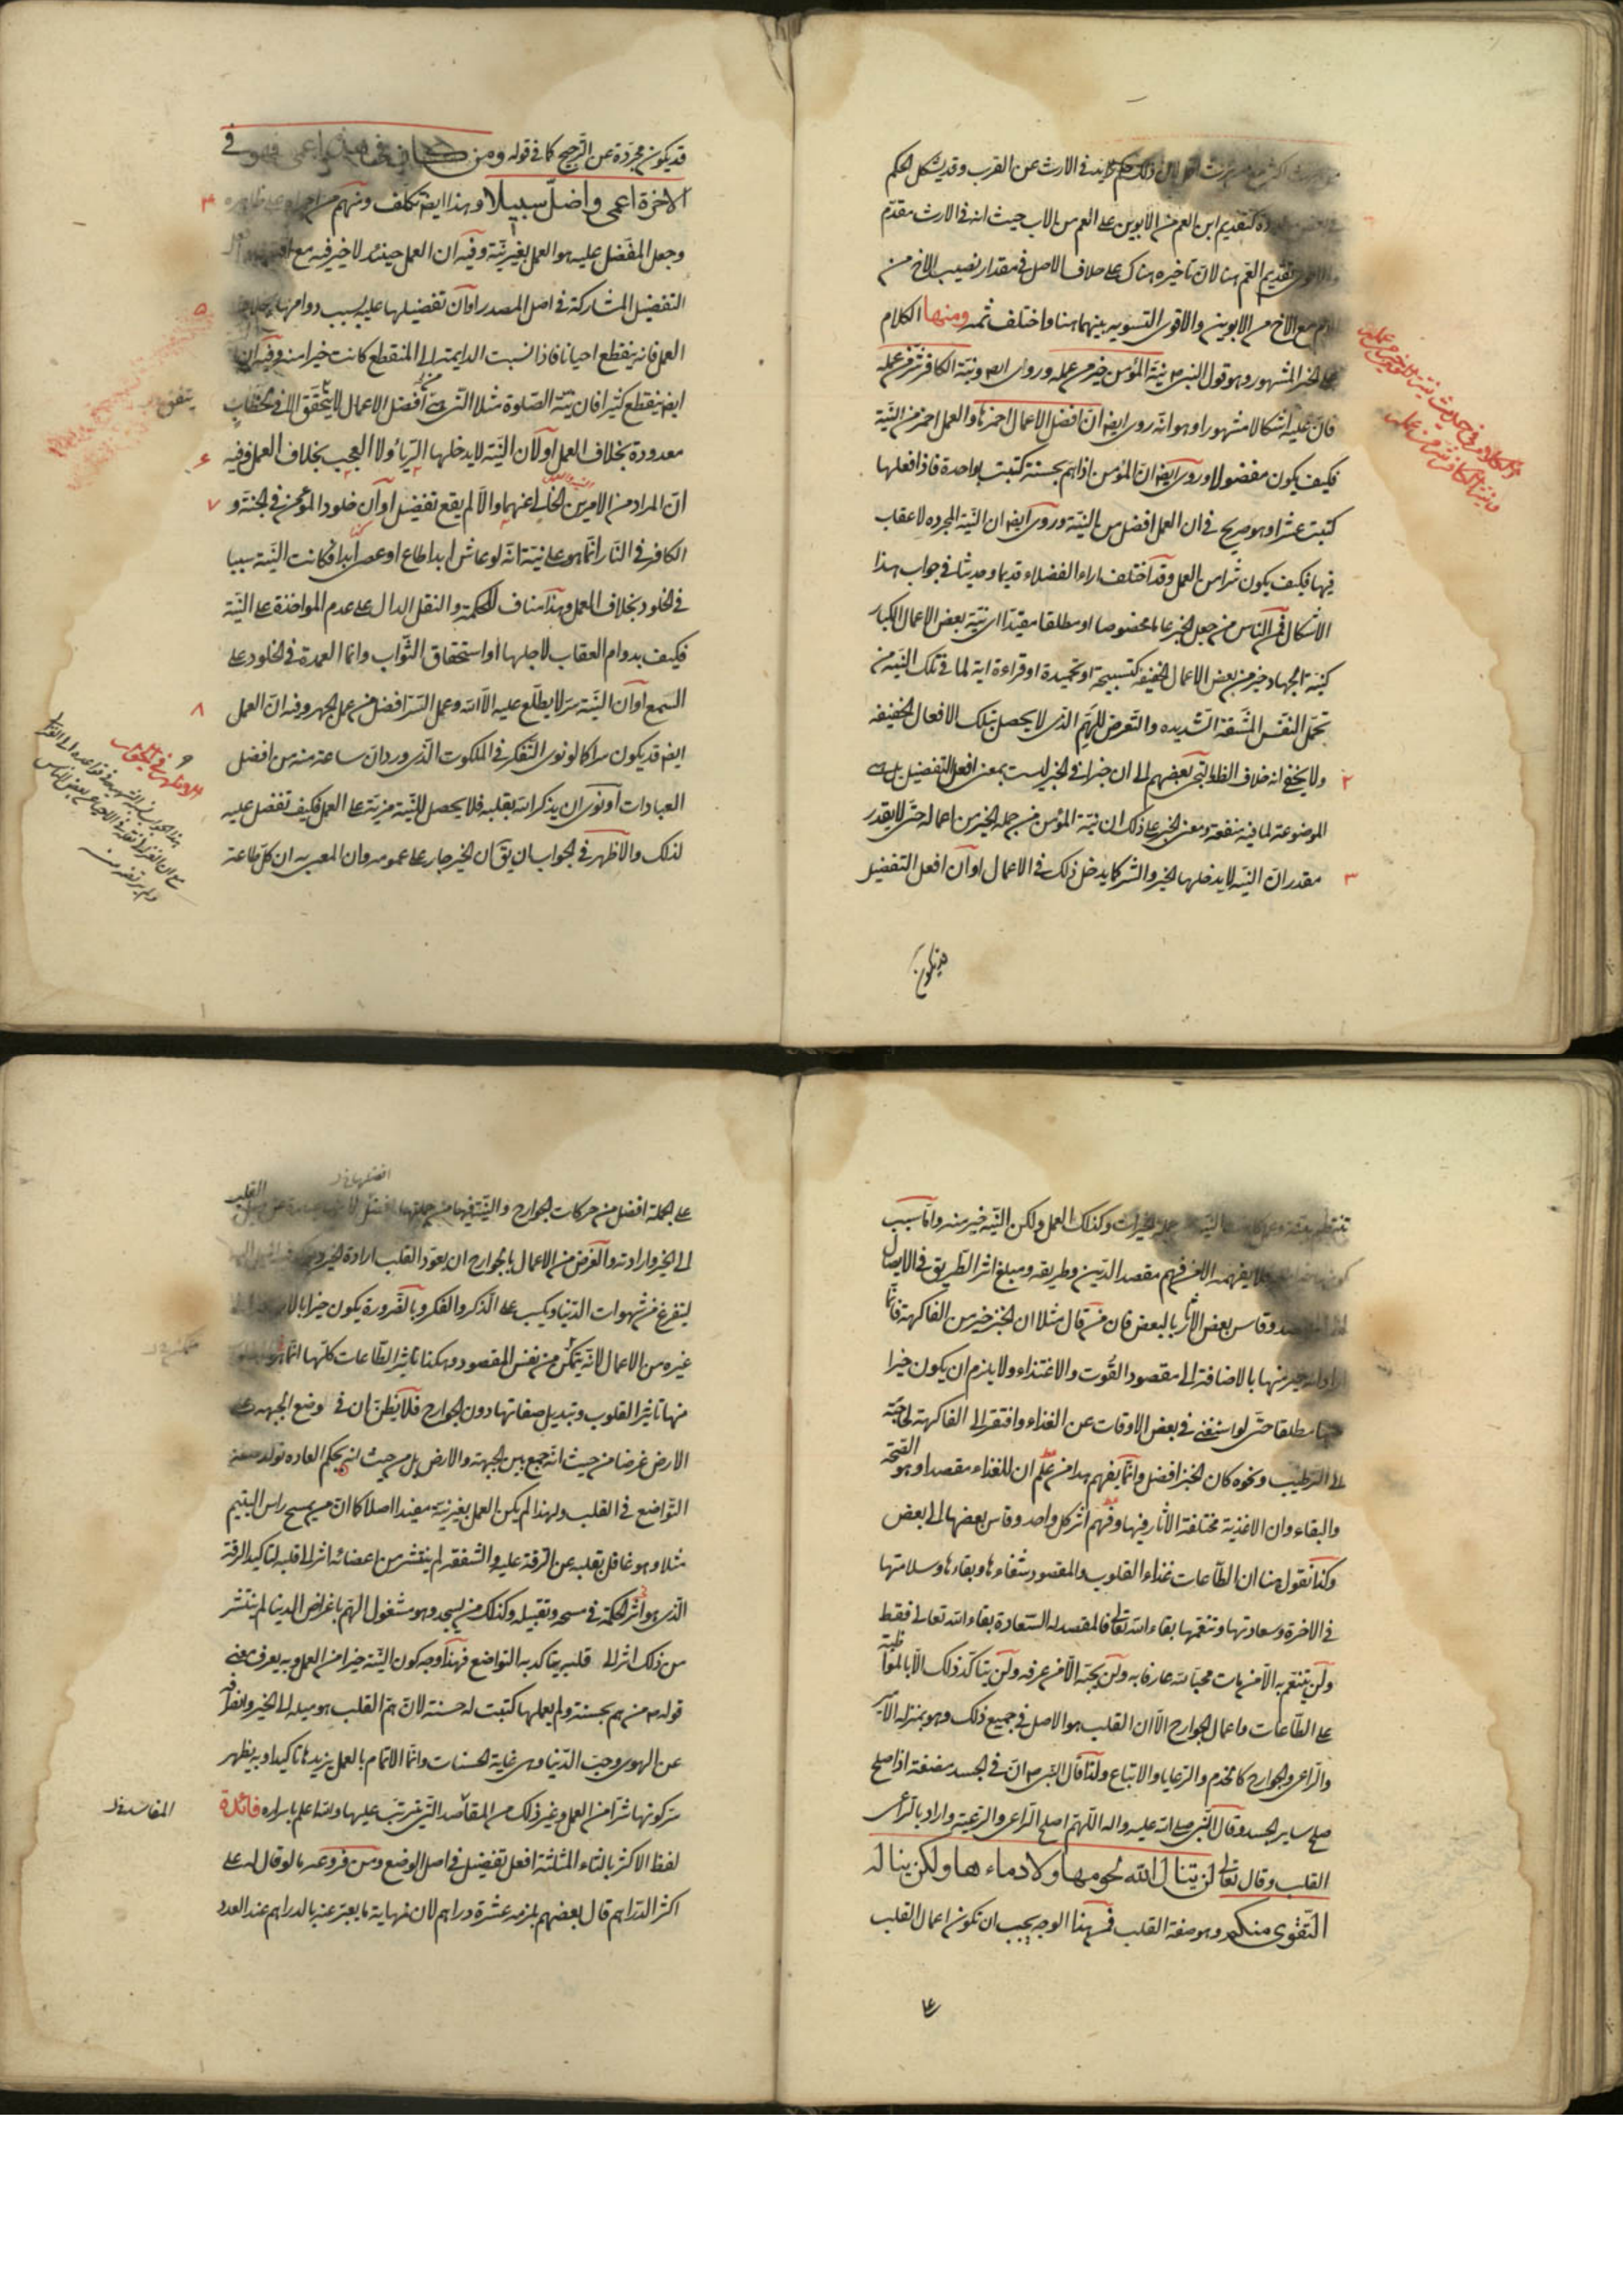 اكثر ممن يرث اقل لان ذلك حكم زايد في الارث عن القرب وقد يشكل الحكم
كتقديم ابن العم من الابوين على العم من الاب حيث انه في الارث مقدم
تقديم العم هنا لان تاخيره هناك على خلاف الاصل في مقدار نصيب الاخ من
الام مع الاخ من الابوين والاقوى التسويه بينهما هنا واختلف ثمه ومنها الكلام
على الخبر المشهور وهو قول النبي ص نية المؤمن خير من عمله وروى ايض ونية الكافر شر من عمله
فان عليه اشكالا مشهورا وهو انه روى ايض ان افضل الاعمال احمزها والعمل احمز من النية
فكيف يكون مفضولا وروى ايض ان المؤمن اذا هم بحسنة كتبت بواحدة فاذا فعلها
كتبت عشرا وهو صريح في ان العمل افضل من النية وروى ايض ان النية المجرده لا عقاب
فيها فكيف يكون شرا من العمل وقد اختلف اراء الفضلاء قديما وحديثا في جواب هذا
الاشكال فمن الناس من جعل الخبر عاما مخصوصا او مطلقا مقيدا اى نية بعض الاعمال الكبار
كنية الجهاد خير من بعض الاعمال الخفيفه كتسبيحة او تحميدة او قراءة اية لما في تلك النية من
تحمل النفس المشقة الشديده والتعرض للهم الذى لا يحصل بتلك الافعال الخفيفه
ولا يخفى انه خلاف الظاهر بعضهم الى ان خيرا في الخبر ليست بمعنى افعل التفضيل بل هى
الموضوعة لما فيه منفعة ومعنى الخبر على ذلك ان نية المؤمن من جمله الخير من اعماله حتى لا يقدر
مقدر ان النيه لا يدخلها الخير والشر كما يدخل ذلك في الاعمال او ان افعل التفضيل
قد يكون
الكلام في حديث نية المؤمن خير من عمله
ونية الكافر شر من عمله
٢
٣
قد يكون مجردة عن الترجيح كما في قوله ومن كان في هذه اعمى فهو في
الاخرة اعمى واضل سبيلا وهذا ايض تكلف ومنهم من اجراه على ظاهره
وجعل المفضل عليه هو العمل بغير نية وفيه ان العمل حينئذ لا خير فيه مع
التفضيل المشاركة في اصل المصدر او ان تفضيلها عليه بسبب دوامها بخلاف
العمل فانه ينقطع احيانا فاذا نسبت الدايمة الى المنقطع كانت خيرا منه وفيه ان
ايض ينقطع كثيرا فان نية الصلوة مثلا التى هى افضل الاعمال لا يتحقق الا في لحظات
معدودة بخلاف العمل او لان النية لا يدخلها الرياء ولا العجب بخلاف العمل وفيه
ان المراد من الامرين الخالى عنهما والا لم يقع تفضيل او ان خلود المؤمن في الجنة و
الكافر في النار انما هو على نية انه لو عاش ابدا طاع او عصى ابدا فكانت النية سببا
في الخلود بخلاف العمل وهذا مناف للحكمة والنقل الدال على عدم المواخذة على النية
فكيف بدوام العقاب لاجلها او استحقاق الثواب وانما العمدة في الخلود على
السمع او ان النية سر لا يطلع عليه الا الله وعمل السر افضل من عمل الجهر وفيه ان العمل
ايض قد يكون سرا كما لو نوى التفكر في الملكوت الذى ورد ان ساعة منه من افضل
العبادات او نوى ان يذكر الله بقلبه فلا يحصل للنية مزية على العمل فكيف تفضل عليه
لذلك والاظهر في الجواب ان يق ان الخبر جار على عمومه وان المعنى به ان كل طاعة
٣
٥
يتفق
٦
٧
٨
تنتظم بنية وعمل النية من جمله الخيرات وكذلك العمل ولكن النية خير منه واما سبب
فلا يفهمه الا من فهم مقصد الدين وطريقه ومبلغ اثر الطريق في الايصال
وقاس بعض الاثار بالبعض فان من قال مثلا ان الخبز خير من الفاكهة فانما
اراد انه خير منها بالاضافة الى مقصود القوت والاغتذاء ولا يلزم ان يكون خيرا
منها مطلقا حتى لو استغنى في بعض الاوقات عن الغذاء وافتقر الى الفاكهة لحاجته
الى الترطيب ونحوه كان الخبز افضل وانما يفهم هذا من علم ان للغذاء مقصدا وهو الصحة
والبقاء وان الاغذية مختلفة الاثار فيها وفهم اثر كل واحد وقاس بعضها الى بعض
وكذا نقول هنا ان الطاعات غذاء القلوب والمقصود شفاءها وبقاءها وسلامتها
في الاخرة وسعادتها وتنعمها بقاء الله تعالى فالمقصد له السعادة بقاء الله تعالى فقط
ولن يتنعم به الا من مات محبا لله عارفا به ولن يحبه الا من عرفه ولن يتاكد ذلك الا بالمواظبة
على الطاعات واعمال الجوارح الا ان القلب هو الاصل في جميع ذلك وهو بمنزلة الامير
والراعى والجوارح كالخدم والرعايا والاتباع ولذا قال النبى ص ان في الجسد مضغة اذا صلح
صلح ساير الجسد وقال النبى صلى الله عليه واله اللهم اصلح الراعى والرعية واراد بالراعى
القلب وقال تعالى لن ينال الله لحومها ولا دماءها ولكن يناله
التقوى منكم وهو صفة القلب فمن هذا الوجه يجب ان تكون اعمال القلب
على
على الجملة افضل من حركات الجوارح والنية فيها من جملتها افضل القلب
الى الخير وارادته والغرض من الاعمال بالجوارح ان يعود القلب ارادة الخير
ليتفرغ من شهوات الدنيا ويكب على الذكر والفكر وبالضرورة يكون خيرا بالاضافة الى
غيره من الاعمال لانه يتمكن من نفس المقصود وهكذا تاثير الطاعات كلها انما
منها تاثير القلوب وتبديل صفاتها دون الجوارح فلا يظن ان في وضع الجبهه على
الارض غرضا من حيث انه جمع بين الجبهة والارض بل من حيث انه بحكم العاده تولد صفة
التواضع في القلب ولهذا لم يكن العمل بغير نية مفيدا اصلا كما ان من يمسح راس اليتيم
مثلا وهو غافل بقلبه عن الرقة عليه والشفقه لم ينتشر من اعضائه اثر الى قلبه لتاكيد الرقة
الذى هو اثر الحكمة في مسحه وتقبيله وكذلك من يسجد وهو مشغول الهم باغراض الدنيا لم ينتشر
من ذلك اثر الى قلبه يتاكد به التواضع فهذا وجه كون النية خيرا من العمل وبه يعرف معنى
قوله ص من هم بحسنة ولم يعملها كتبت له حسنة لان هم القلب هو ميله الى الخير وانصرافه
عن الهوى وحب الدنيا وهى غاية الحسنات وانما الاتمام بالعمل يزيدها تاكيدا وبه يظهر
سر كونها شرا من العمل وغير ذلك من المقاصد التى تترتب عليها والله اعلم باسراره فائدة
لفظ الاكثر بالثاء المثلثة افعل تفضيل في اصل الوضع ومن فروعه ما لو قال له على
اكثر الدراهم قال بعضهم يلزمه عشرة دراهم لان نهاية ما يعبر عنه بالدراهم عند العدد